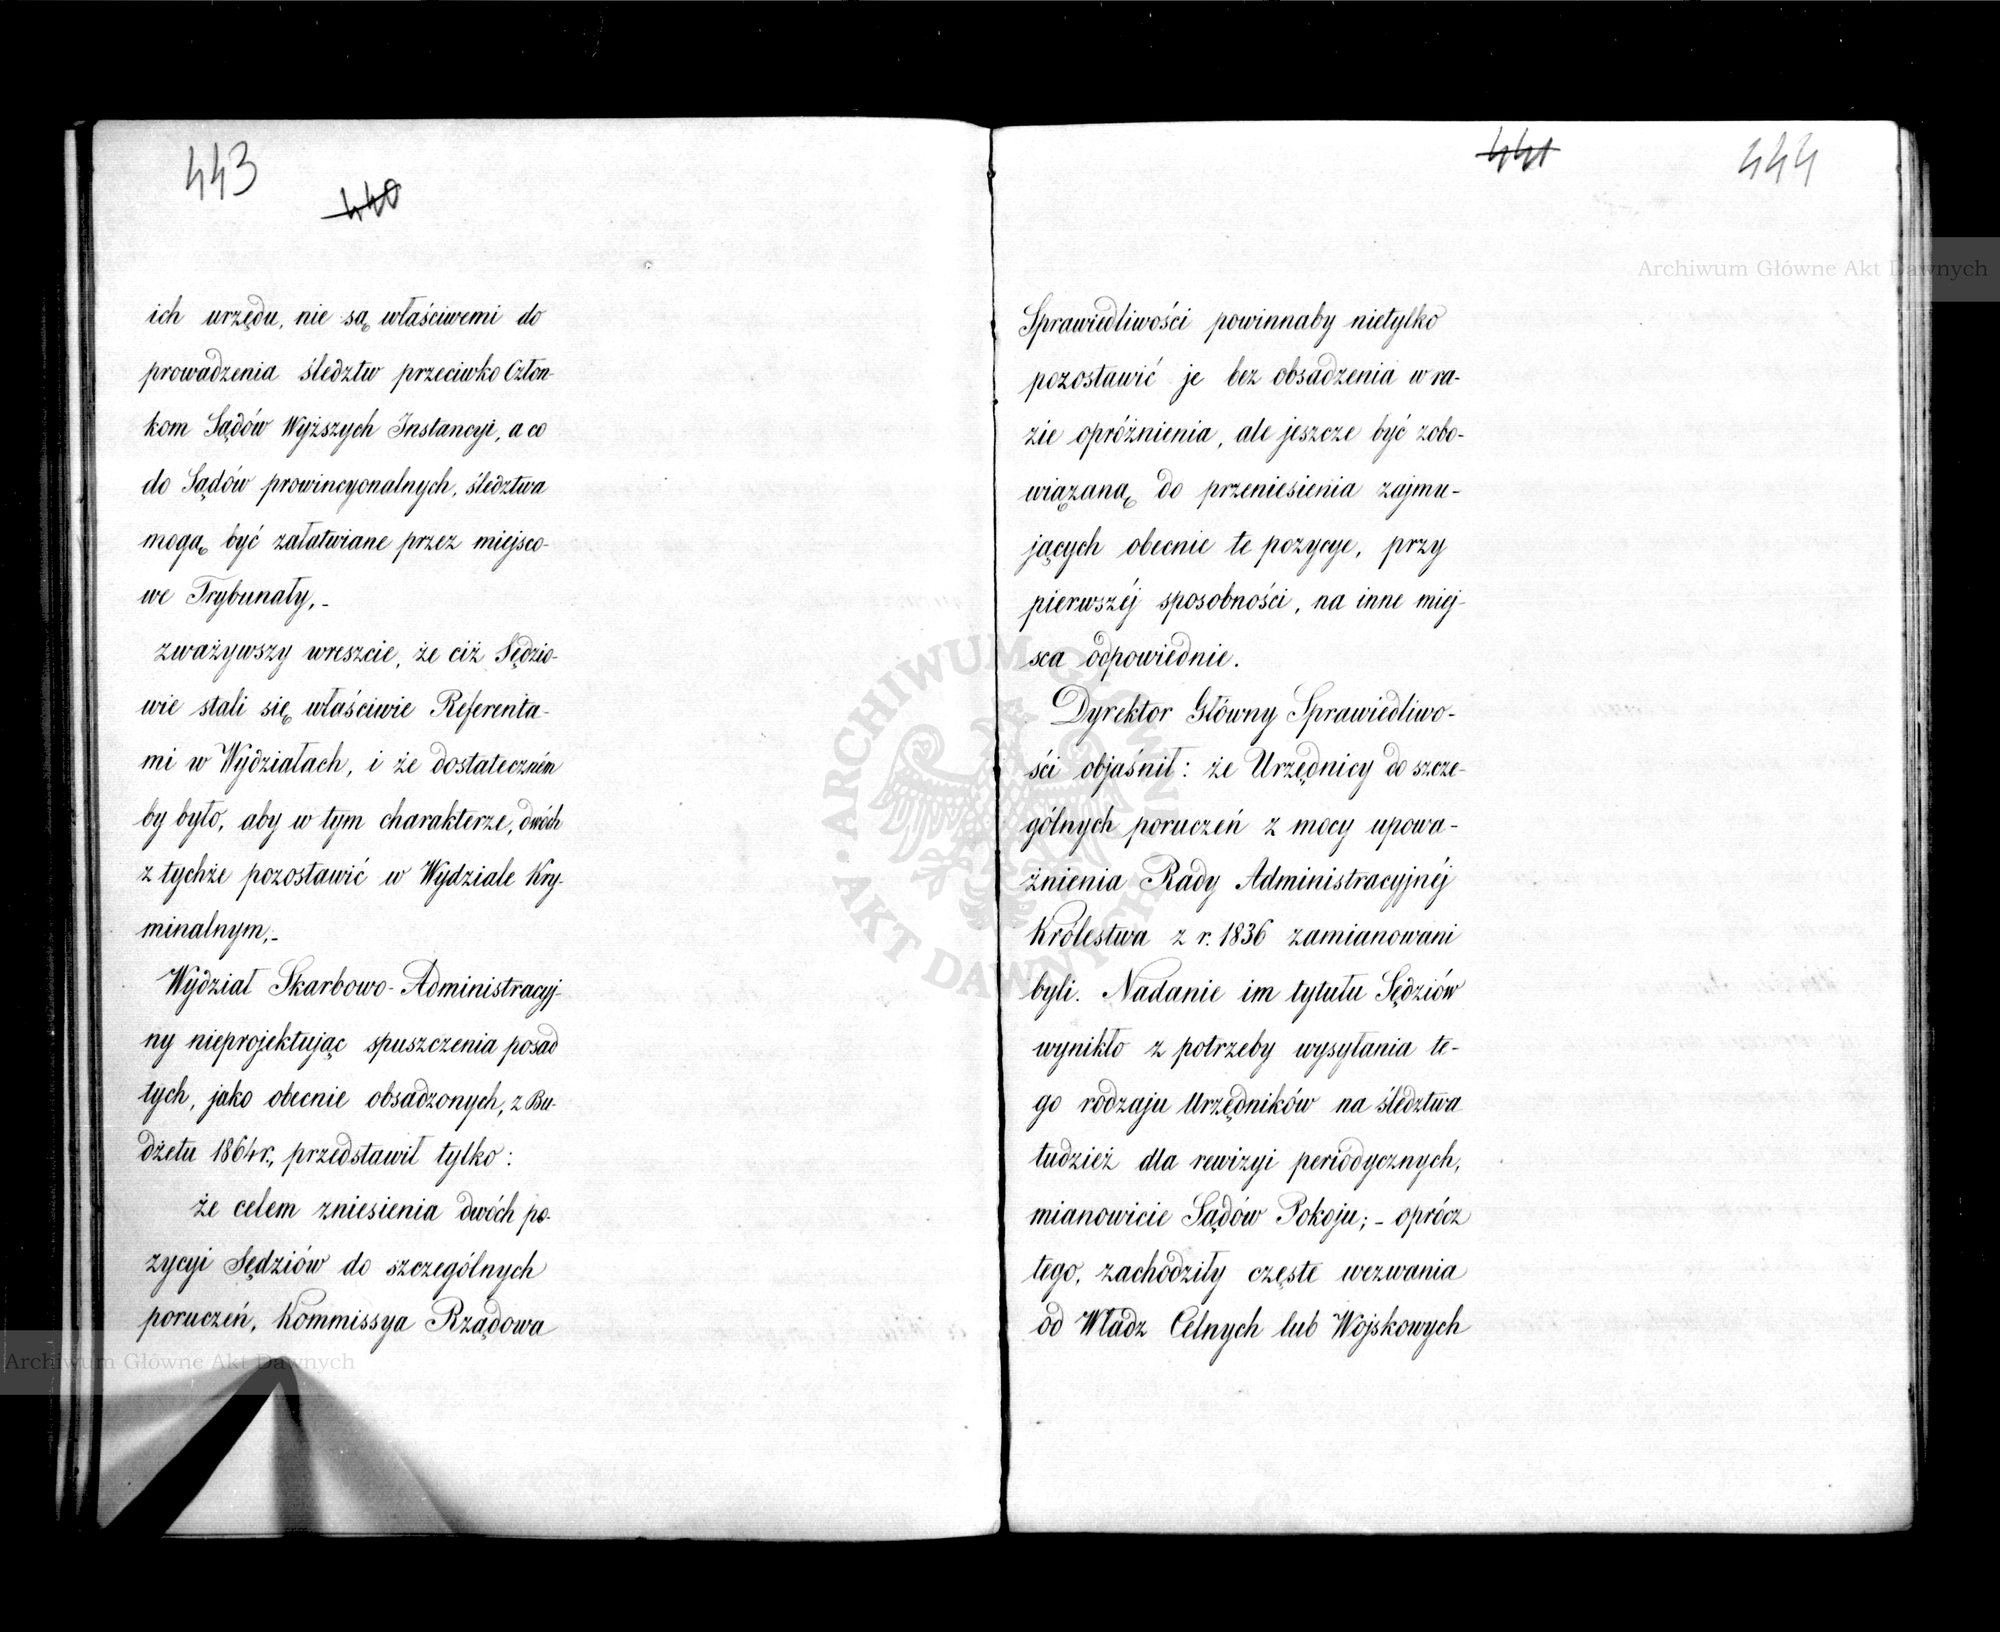 443
440
ich urzędu, nie są właściwemi do
prowadzenia śledztw przeciwko Człon-
kom Sądów Wyższych Instancyi, a co
do Sądów prowincyonalnych, śledztwa
mogą być załatwiane przez miejsco-
we Trybunały,-
zważywszy wreszcie, że ciż Sędzio-
wie stali się właściwie Referenta-
mi w Wydziałach, i że dostateczném
by było, aby w tym charakterze, dwóch
z tychże pozostawić w Wydziale Kry-
minalnym,-
Wydział Skarbowo-Administracyj-
ny nieprojektując spuszczenia posad
tych, jako obecnie obsadzonych, z Bu-
dżetu 1864r., przedstawił tylko:
że celem zniesienia dwóch po-
zycyi Sędziów do szczególnych
poruczeń, Kommissya Rządowa
441
444
Sprawiedliwości powinnaby nietylko
pozostawić je bez obsadzenia w ra-
zie opróżnienia, ale jeszcze być zobo-
wiązaną do przeniesienia zajmu-
jących obecnie te pozycye, przy
pierwszéj sposobności, na inne miej-
sca odpowiednie.
Dyrektor Główny Sprawiedliwo-
ści objaśnił: że Urzędnicy do szcze-
gólnych poruczeń z mocy upowa-
żnienia Rady Administracyjnéj
Królestwa z r. 1836 zamianowani
byli. Nadanie im tytułu Sędziów
wynikło z potrzeby wysyłania te-
go rodzaju Urzędników na śledztwa
tudzież dla rewizyi periodycznych,
mianowicie Sądów Pokoju; - oprócz
tego, zachodziły częste wezwania
od Władz Celnych lub Wojskowych
Archiwum Główne Akt Dawnych
ARCHIWUM GŁÓWNE AKT DAWNYCH
Archiwum Główne Akt Dawnych